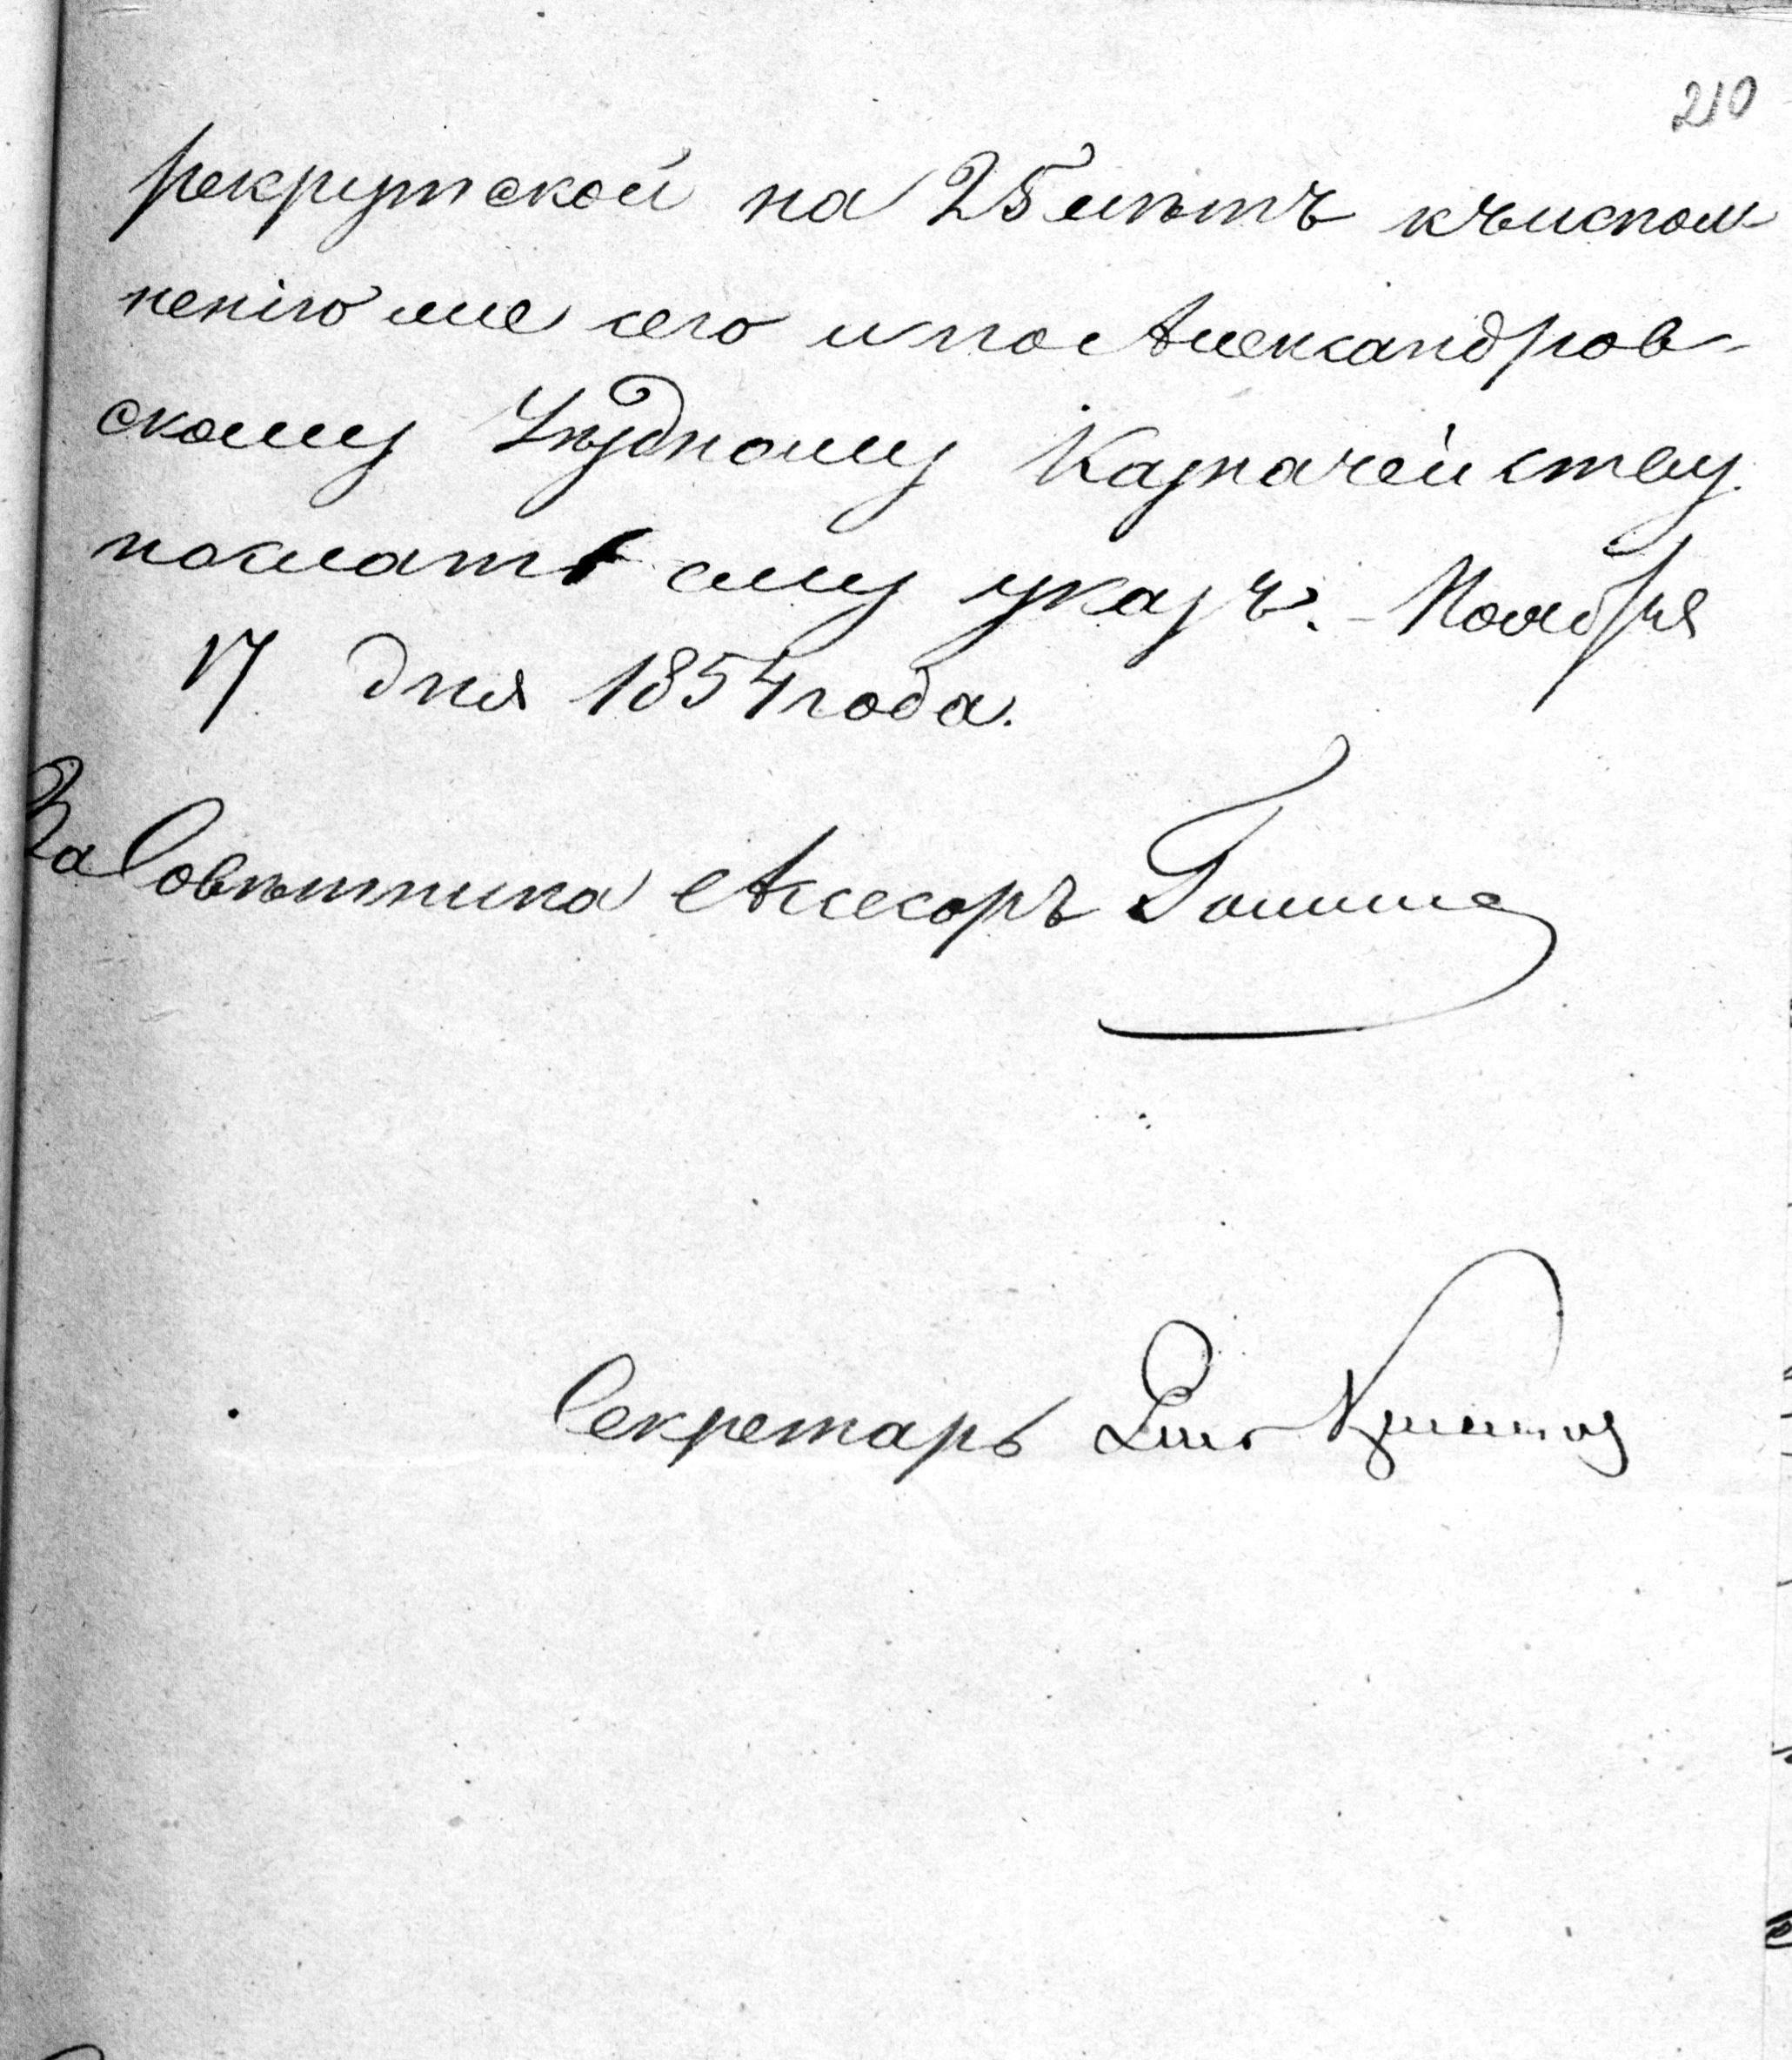 210
рекрутской на 25 лѣтъ къ испол
ненію же сего и по Александров-
скому Уѣздному Казначейству
послать ему указъ. - Ноября
17 дня 1854 года.
За Совѣтника Ассесоръ
Секретарь